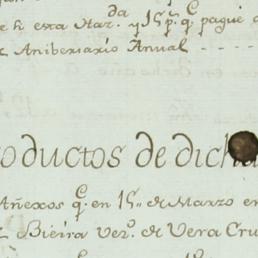 e h esta Haz.da y 15 p.s q.e pague a
Aniversario Anual
oductos de dicha
Añexos q.e en 15,, de Marzo en
Bieira vez.o de Vera Cru